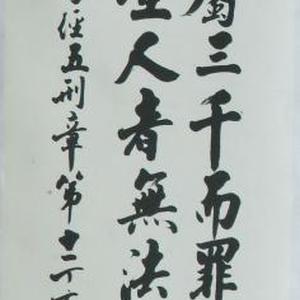 屬三千而罪
聖人者無法
經五刑章第十